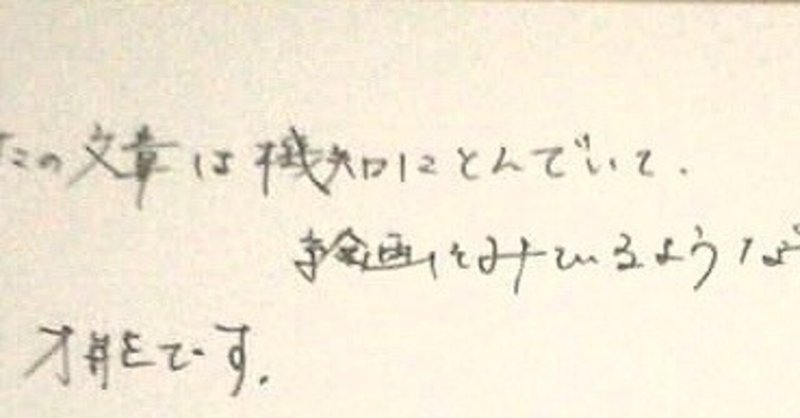 この文章は機知にとんでいて.
絵画をみているような
才能です.